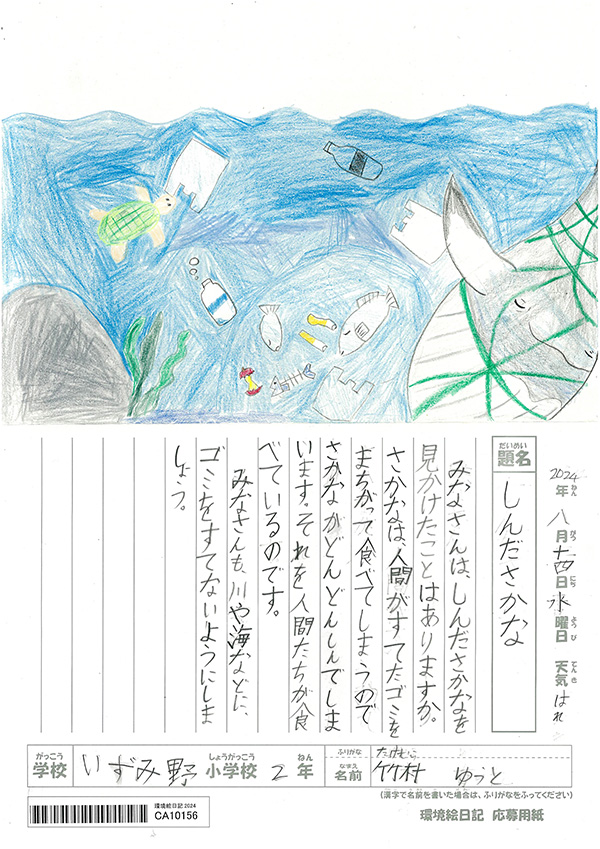 2024年 八月十四日 水曜日 天気 はれ
ねん がつ にち ようび てんき
だいめい
題名
しんださかな
みなさんは、しんださかなを
見かけたことはありますか。
さかなは、人間がすてたゴミを
まちがって食べてしまうので
さかながどんどんしんでしま
います。それを人間たちが食
べているのです。
みなさんも、川や海などに、
ゴミをすてないようにしま
しょう。
がっこう しょうがっこう ねん
学校 いずみ野 小学校 2年
ふりがな たけむら
なまえ
名前 竹村 ゆうと
(漢字で名前を書いた場合は、ふりがなをふってください)
環境絵日記 2024
CA10156
環境絵日記 応募用紙